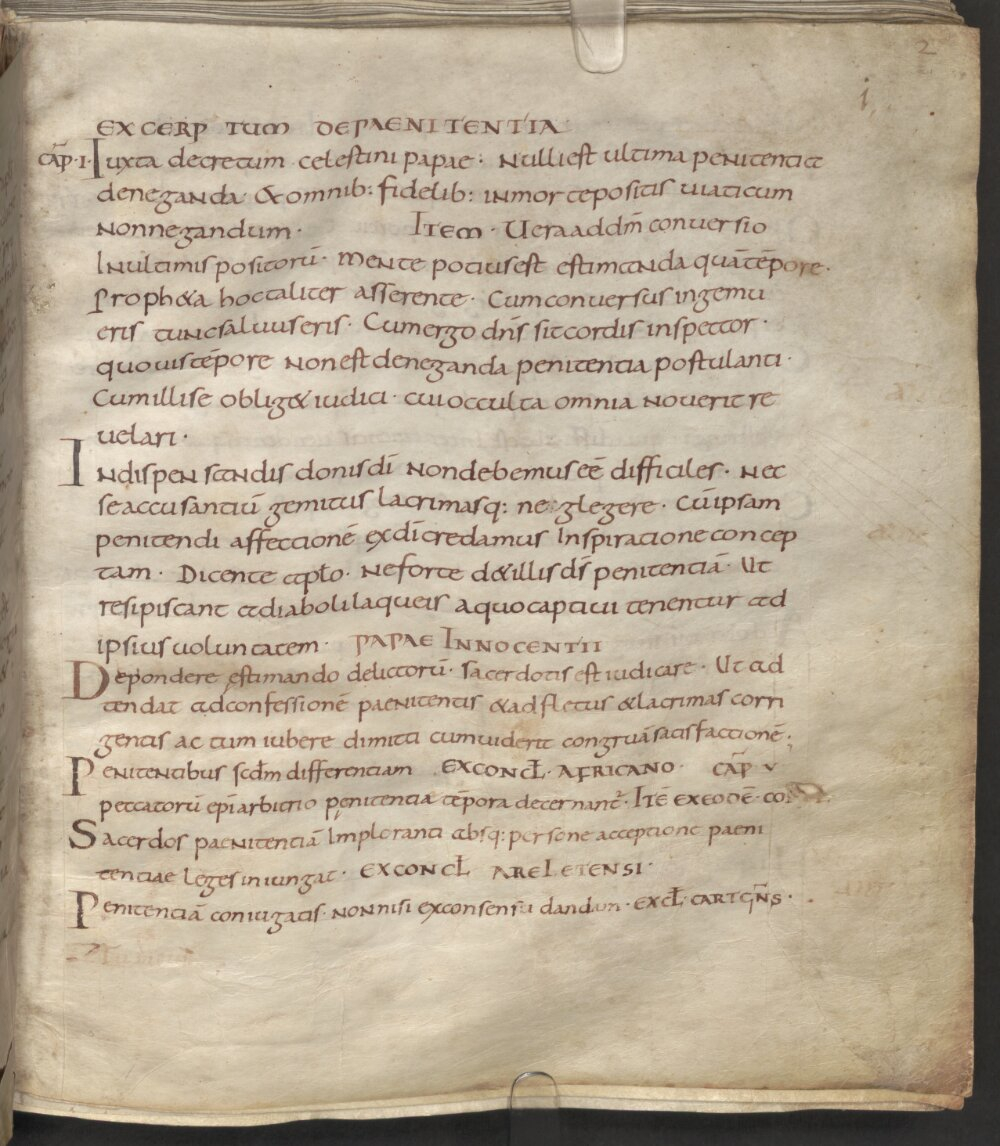 2
i
EXCERPTUM DE PAENITENTIA
CAP̄·I· Iuxta decretum celestini papae· Nulli est ultima penitentia
deneganda· & omnib: fidelib: in morte positis uiaticum
non negandum· ITEM· Uera ad dm̄ conuersio
In ultimis positorū· mente potius est estimanda quā tēpore·
Proph&a hoc taliter asserente· Cum conuersus ingemu
eris tunc saluus eris· Cum ergo dn̄s sit cordis inspector·
quouis tēpore non est deneganda penitentia postulanti·
Cum ille se oblig& iudici· cui occulta omnia nouerit re
uelari·
In dispensandis donis dī non debemus eē difficiles· nec
se accusantiū gemitus lacrimasq: neglegere· Cū ipsam
penitendi affeccionē ex dī credamus Inspiracione concep
tam· Dicente apło· Ne forte d& illis ds̄ penitenciā· Ut
resipiscant a diaboli laqueis a quo captiui tenentur ad
ipsius uoluntatem· PAPAE INNOCENTII
De pondere estimando delictorū· sacerdotis est iudicare· Ut ad
tendat ad confessionē paenitentis & ad fletus & lacrimas corri
gentis ac tum iubere dimitti cum uiderit congruā satisfactionē·
Penitentibus scdm̄ differentiam EX CONCŁ· AFRICANO· CAP̄ V
peccatorū epī arbitrio penitentia tēpora decernant̄· ITĒ EX EODĒ· CO
Sacerdos paenitentiā Imploranti absq: persone acceptione paeni
tentiae leges iniungat· EX CONCŁ ARELETENSI·
Penitenciā coniugatis· non nisi ex consensu dandam· EX CŁ· CARTG̅N̅S·